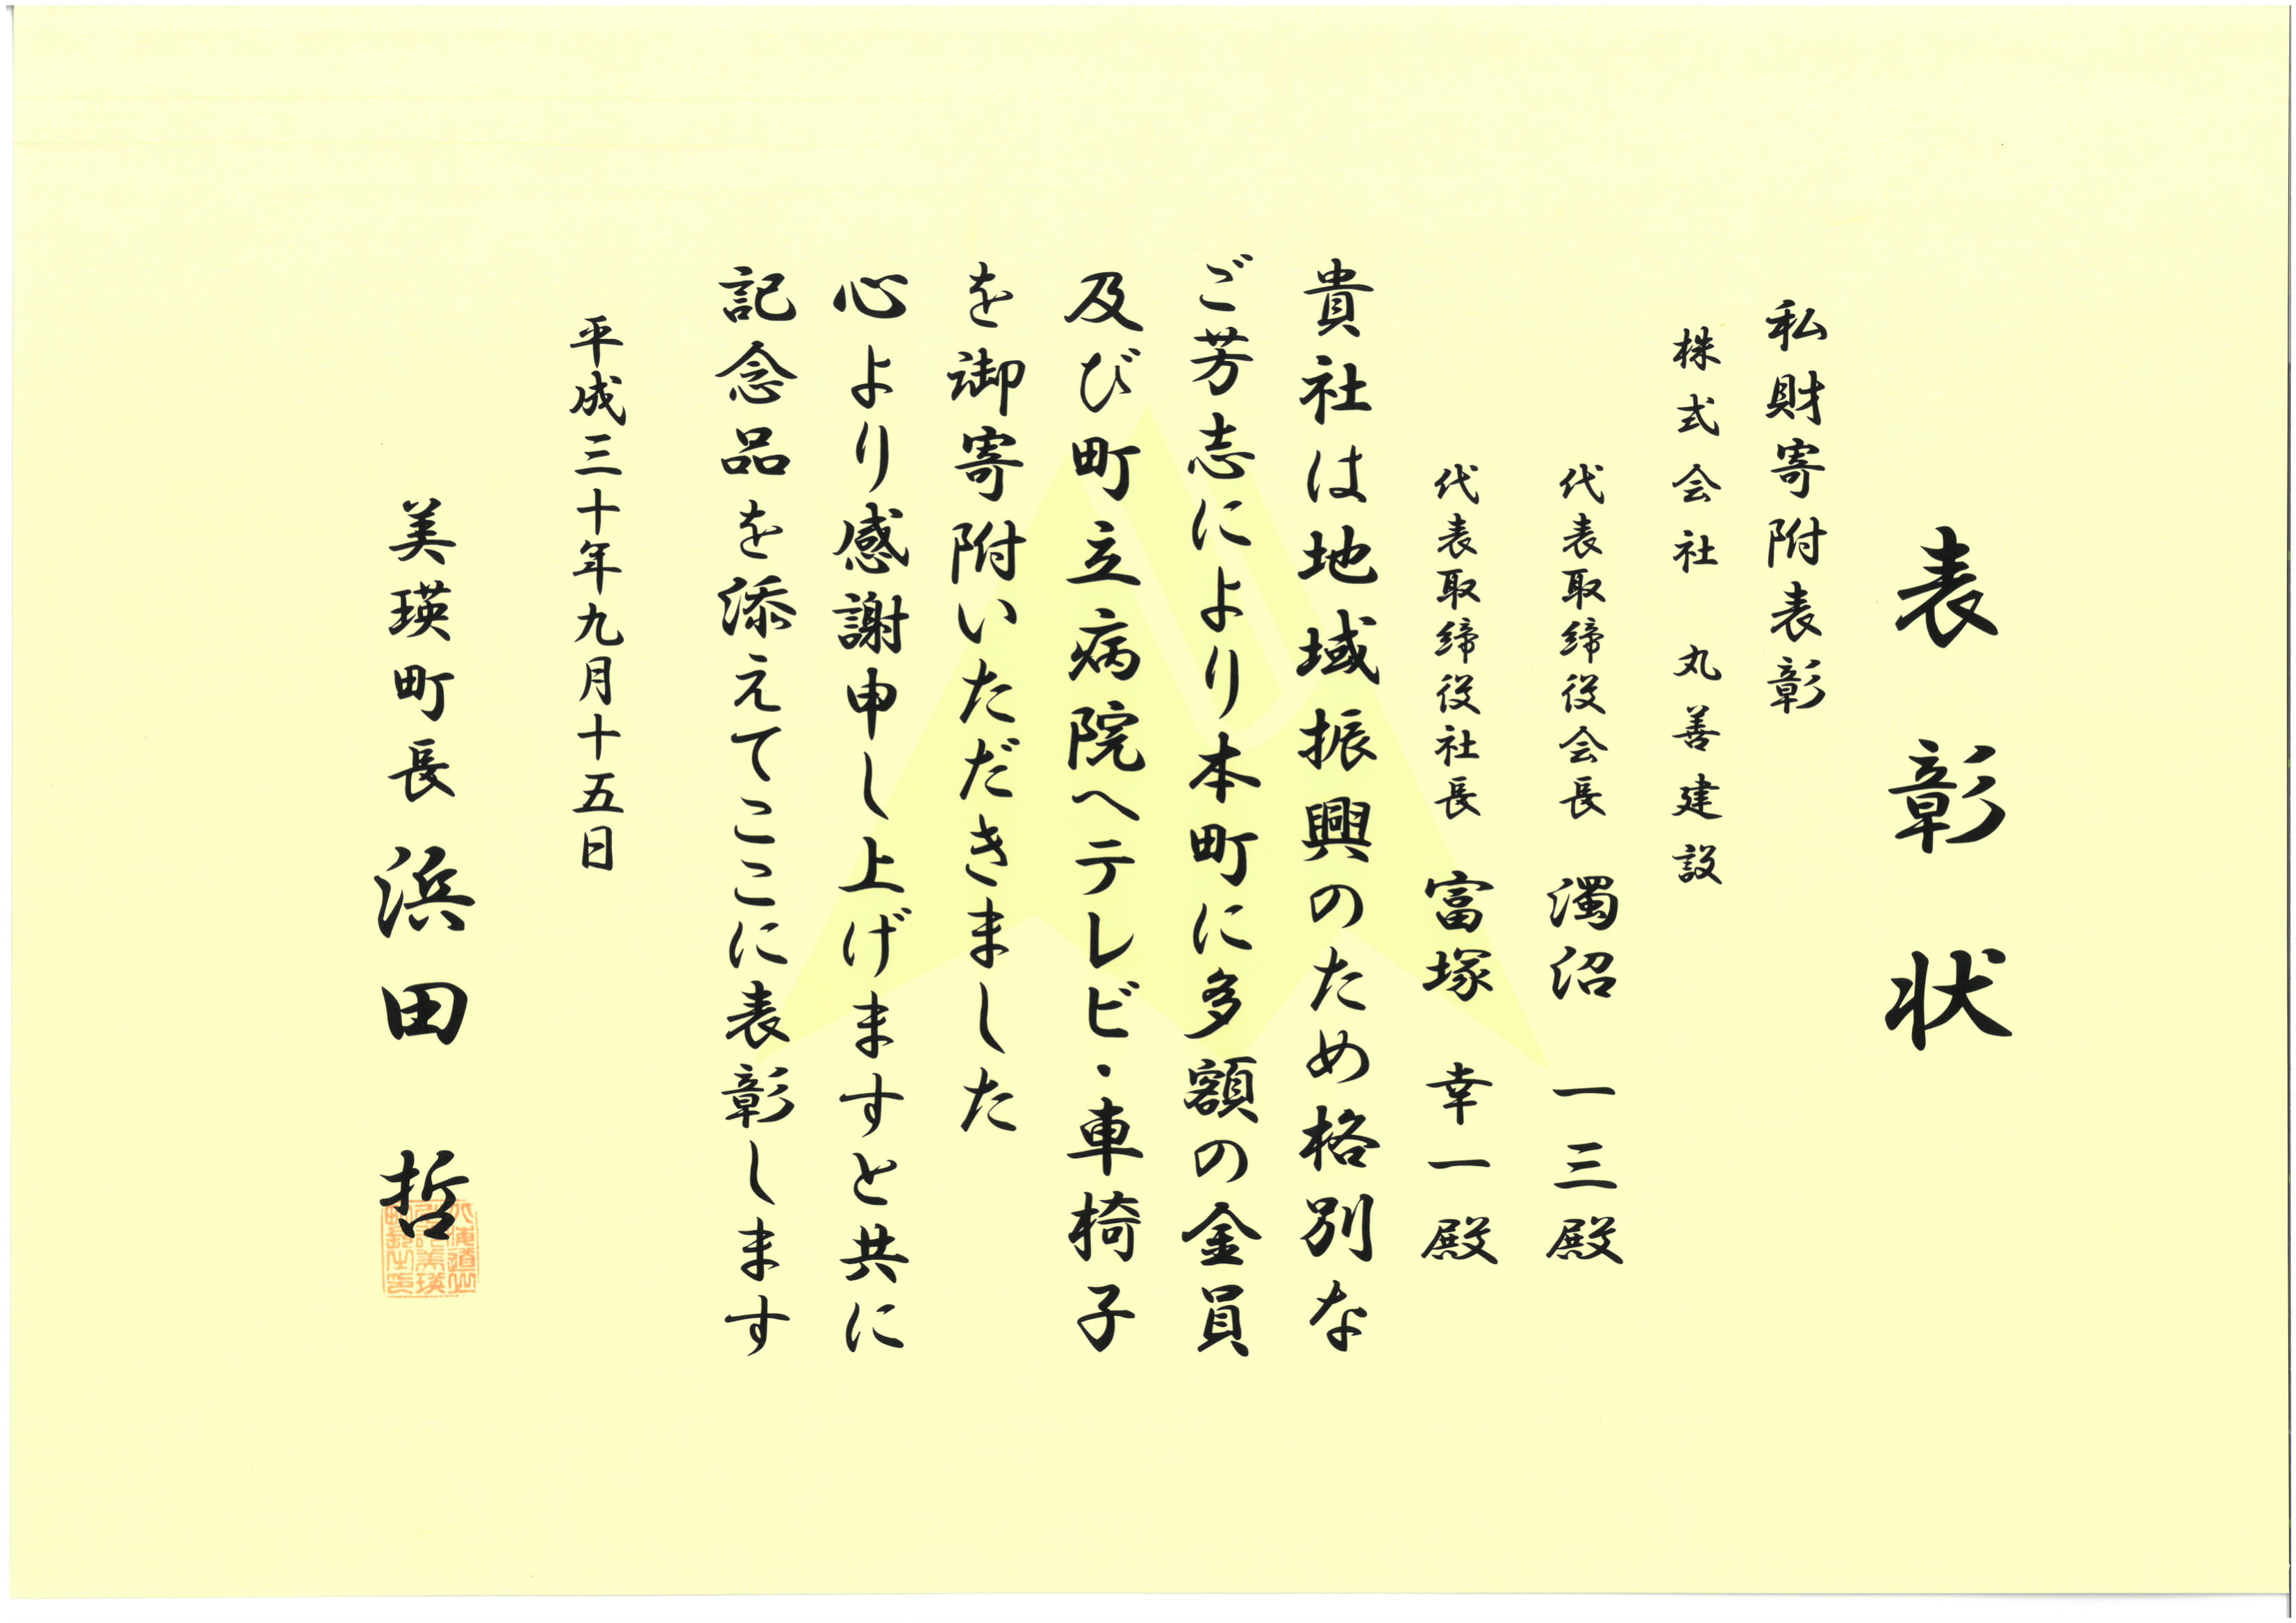 表彰状
私財寄附表彰
株式会社 丸善建設
代表取締役会長 濁沼 一三殿
代表取締役社長 富塚 幸一殿
貴社は地域振興のため格別な
ご芳志により本町に多額の金員
及び町立病院へテレビ・車椅子
を御寄附いただきました
心より感謝申し上げますと共に
記念品を添えてここに表彰します
平成三十年九月十五日
美瑛町長 浜田 哲